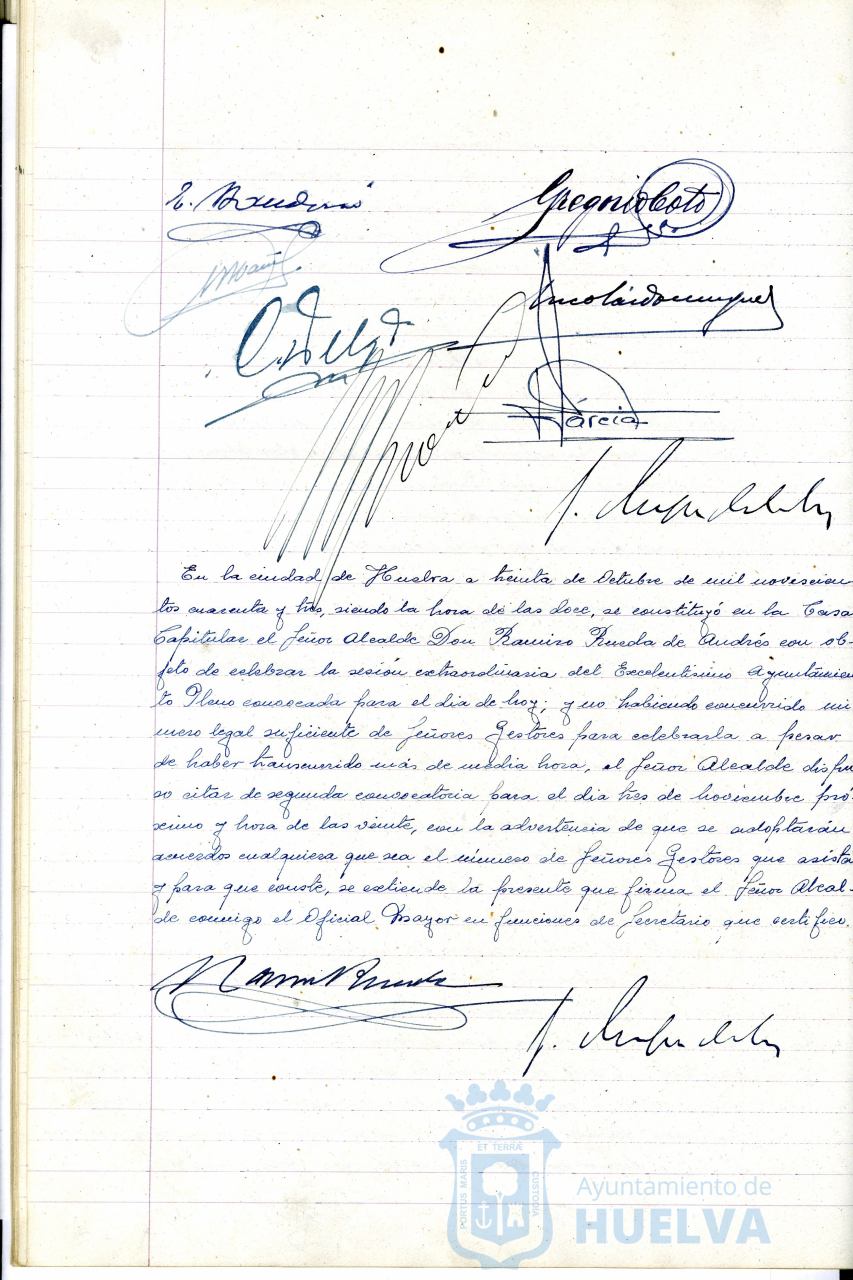 Gregorio Coto
García
En la ciudad de Huelva a treinta de Octubre de mil novecien-
tos cuarenta y tres, siendo la hora de las doce, se constituyó en la Casa
Capitular el Señor Alcalde Don Ramiro Rueda de Andrés con ob-
jeto de celebrar la sesión extraordinaria del Excelentísimo Ayuntamien
to Pleno convocada para el día de hoy; y no habiendo concurrido nú
mero legal suficiente de Señores Gestores para celebrarla a pesar
de haber transcurrido más de media hora, el Señor Alcalde dispu
so citar de segunda convocatoria para el día tres de noviembre pró-
ximo y hora de las veinte, con la advertencia de que se adoptarán
acuerdos cualquiera que sea el número de Señores Gestores que asista
y para que conste, se extiende la presente que firma el Señor Alcal-
de conmigo el Oficial Mayor en funciones de Secretario que certifico.
ET TERRÆ
PORTUS MARIS
CUSTODIA
Ayuntamiento de
HUELVA